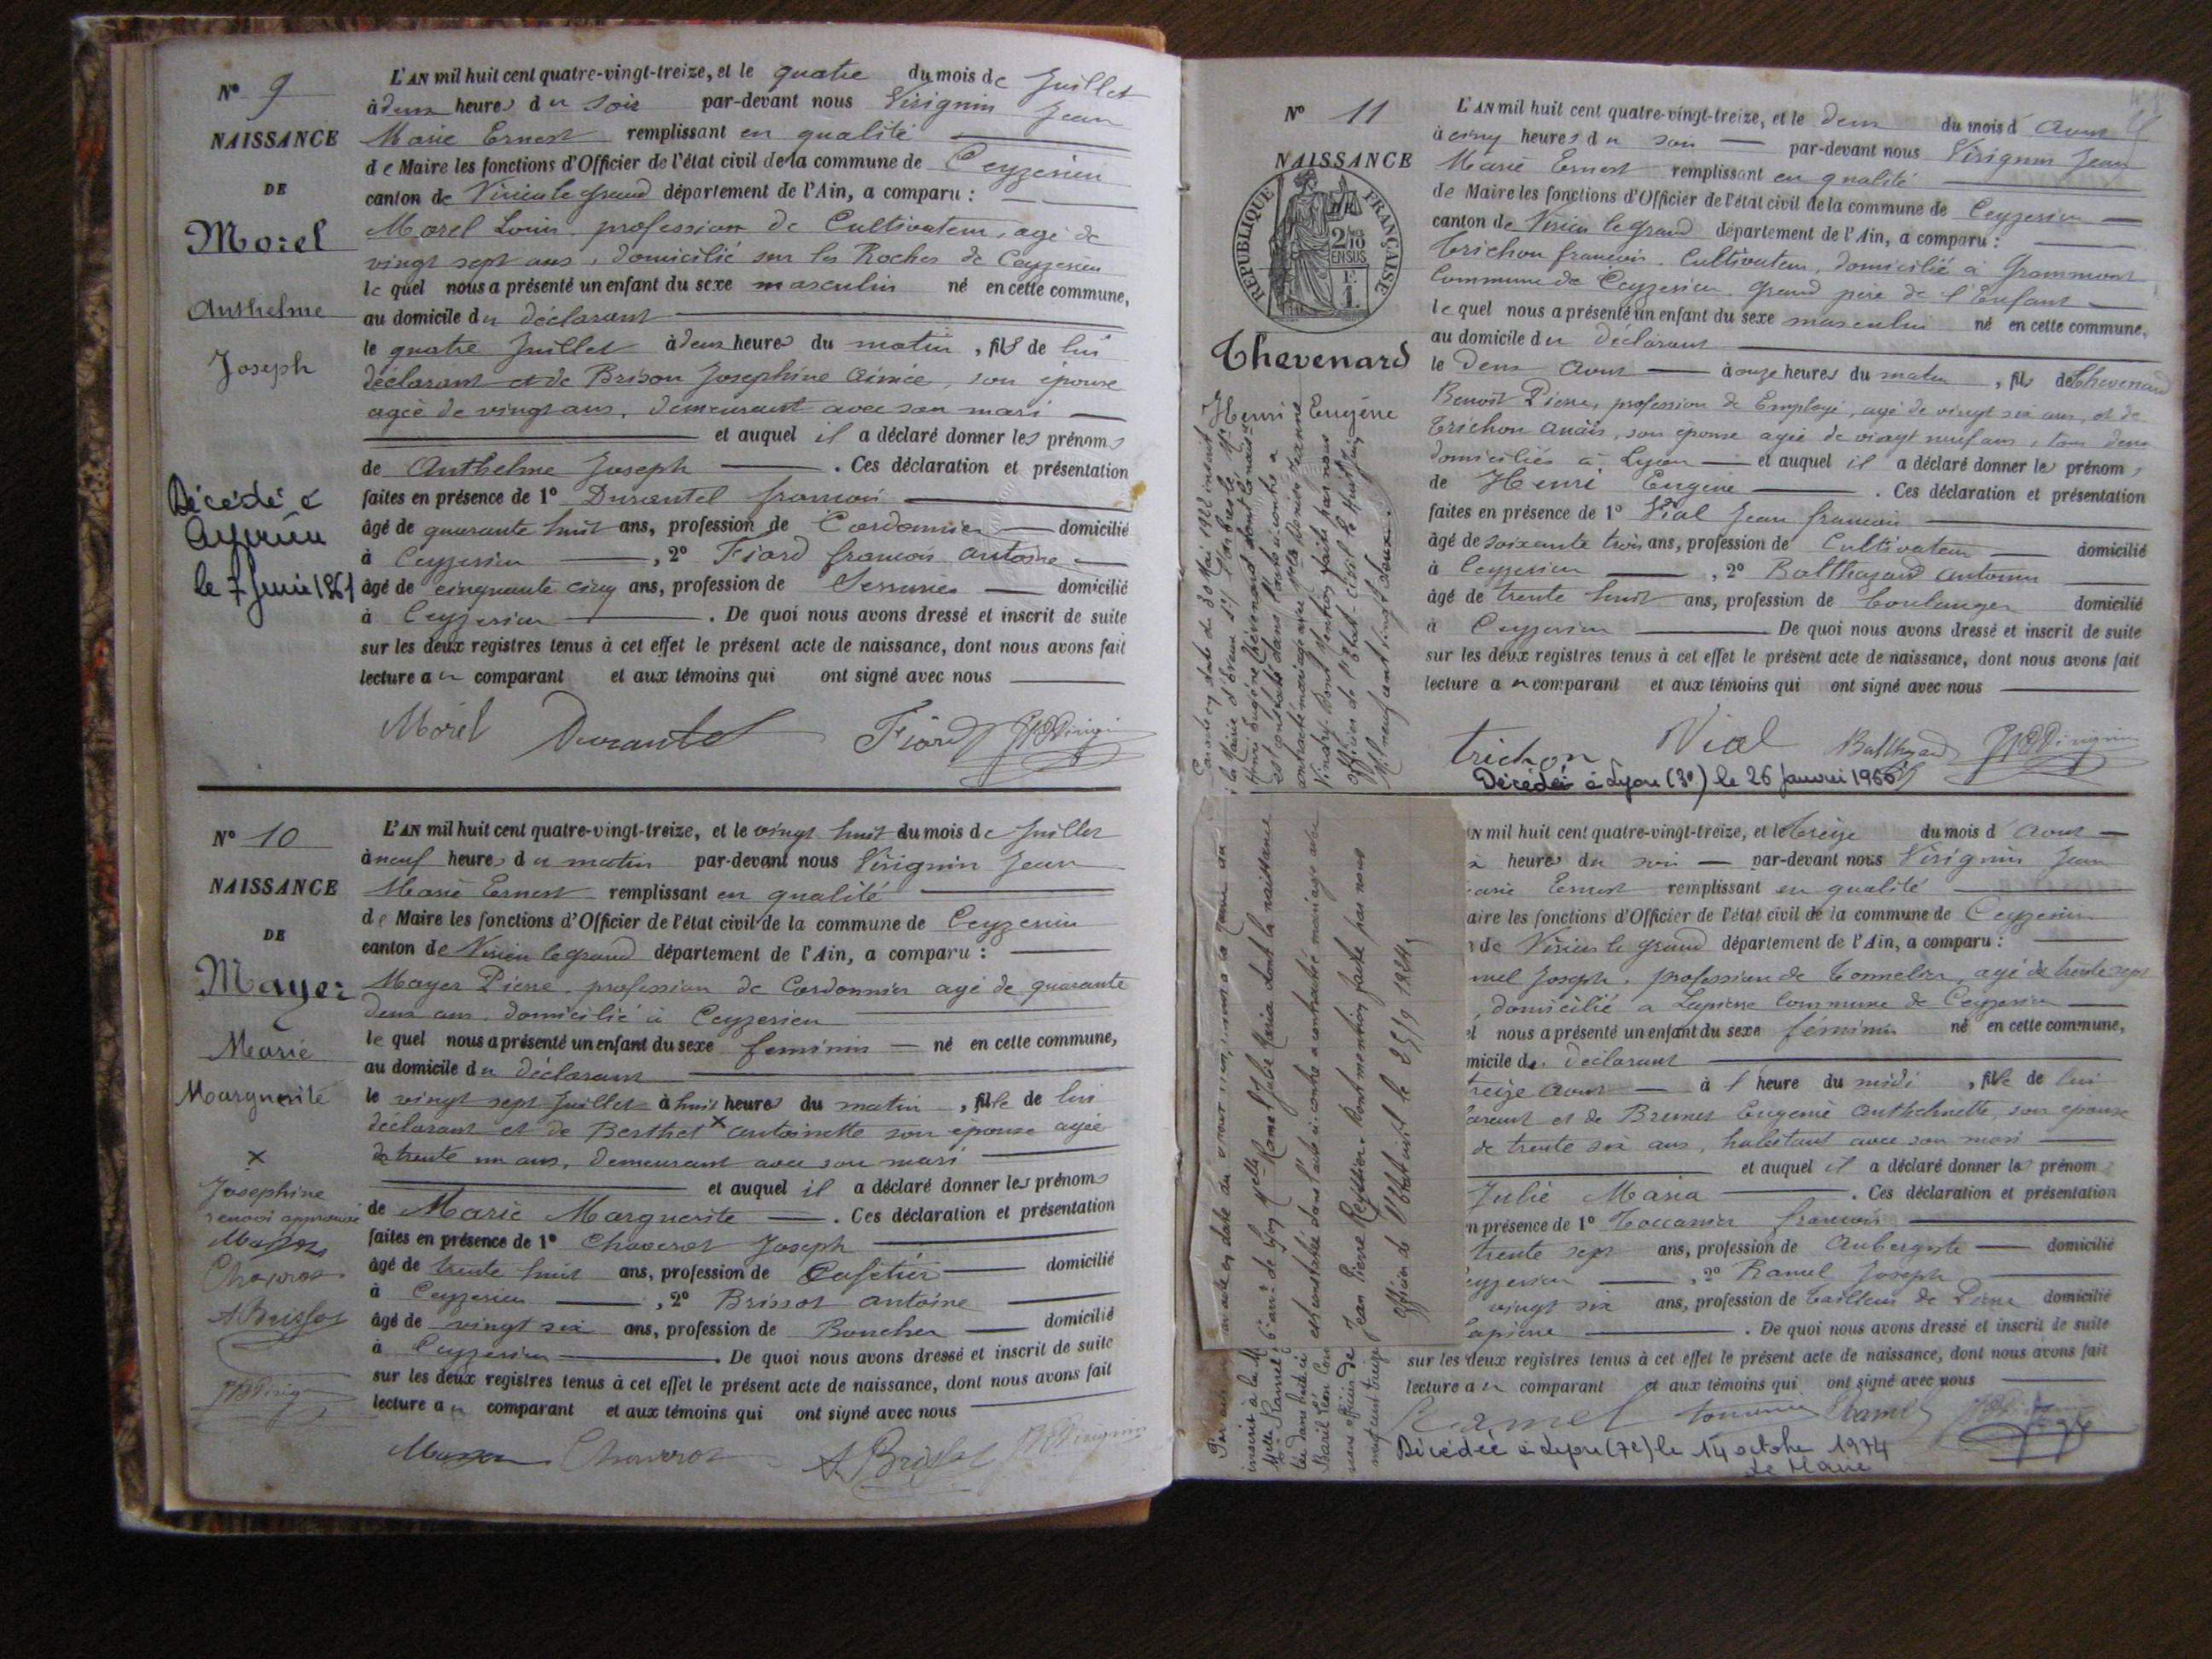 N° 9
NAISSANCE
DE
Morel
Anthelme
Joseph
Décédé à
le 7 Juin 1961
L'AN mil huit cent quatre-vingt-treize, et le quatre du mois de Juillet
à deux heures du soir par-devant nous Virignin Jean
Marie Ernest remplissant en qualité
de Maire les fonctions d'Officier de l'état civil de la commune de Ceyzerieu
canton de Virieu le grand département de l'Ain, a comparu :
Morel Louis profession de Cultivateur, agé de
vingt sept ans, domicilié sur les Roches de Ceyzerieu
lequel nous a présenté un enfant du sexe masculin né en cette commune,
au domicile du déclarant
le quatre Juillet à deux heures du matin, fils de lui
déclarant et de Brison Josephine Aimée, son épouse
agée de vingt ans, demeurant avec son mari
et auquel il a déclaré donner les prénoms
de Anthelme Joseph . Ces déclaration et présentation
faites en présence de 1° Durantel francois
âgé de quarante huit ans, profession de Cordonnier domicilié
à Ceyzerieu , 2° Fiard francois antoine
âgé de cinquante cinq ans, profession de Serrurier domicilié
à Ceyzerieu . De quoi nous avons dressé et inscrit de suite
sur les deux registres tenus à cet effet le présent acte de naissance, dont nous avons fait
lecture au comparant et aux témoins qui ont signé avec nous
Morel Durantel Fiard
N° 10
NAISSANCE
DE
Mayer
Marie
Marguerite
x
Josephine
renvoi approuvé
Chaverot
A Brissot
L'AN mil huit cent quatre-vingt-treize, et le vingt huit du mois de Juillet
à neuf heures du matin par-devant nous Virignin Jean
Marie Ernest remplissant en qualité
de Maire les fonctions d'Officier de l'état civil de la commune de Ceyzerieu
canton de Virieu le grand département de l'Ain, a comparu :
Mayer Pierre profession de Cordonnier agé de quarante
deux ans domicilié à Ceyzerieu
lequel nous a présenté un enfant du sexe feminin né en cette commune,
au domicile du déclarant
le vingt sept Juillet à huit heures du matin, fille de lui
déclarant et de Berthet x antoinette son épouse agée
de trente un ans, demeurant avec son mari
et auquel il a déclaré donner les prénoms
de Marie Marguerite . Ces déclaration et présentation
faites en présence de 1° Chaverot Joseph
âgé de trente huit ans, profession de Cafetier domicilié
à Ceyzerieu , 2° Brissot antoine
âgé de vingt six ans, profession de Boucher domicilié
à Ceyzerieu . De quoi nous avons dressé et inscrit de suite
sur les deux registres tenus à cet effet le présent acte de naissance, dont nous avons fait
lecture au comparant et aux témoins qui ont signé avec nous
Chaverot A Brissot
N° 11
NAISSANCE
REPUBLIQUE FRANÇAISE
Thevenard
Henri Eugène
L'AN mil huit cent quatre-vingt-treize, et le deux du mois d'Aout
à cinq heures du soir par-devant nous Virignin Jean
Marie Ernest remplissant en qualité
de Maire les fonctions d'Officier de l'état civil de la commune de Ceyzerieu
canton de Virieu le grand département de l'Ain, a comparu :
Trichon francois Cultivateur, domicilié à Grammont
Commune de Ceyzerieu Grand père de l'Enfant
lequel nous a présenté un enfant du sexe masculin né en cette commune,
au domicile du déclarant
le deux Aout à onze heures du matin, fils de Thevenard
Benoit Pierre, profession de Employé, agé de vingt six ans, et de
Trichon Anaïs, son épouse agée de vingt neuf ans, tous deux
domiciliés à Lyon et auquel il a déclaré donner les prénoms
de Henri Eugène . Ces déclaration et présentation
faites en présence de 1° Vial Jean francois
âgé de soixante trois ans, profession de Cultivateur domicilié
à Ceyzerieu , 2° Balthazard Antonin
âgé de trente huit ans, profession de boulanger domicilié
à Ceyzerieu De quoi nous avons dressé et inscrit de suite
sur les deux registres tenus à cet effet le présent acte de naissance, dont nous avons fait
lecture au comparant et aux témoins qui ont signé avec nous
trichon Vial Balthazard
Décédé à Lyon (3e) le 26 Janvier 1966
N mil huit cent quatre-vingt-treize, et le treize du mois d'Aout
heures du soir par-devant nous Virignin Jean
arie Ernest remplissant en qualité
aire les fonctions d'Officier de l'état civil de la commune de Ceyzerieu
de Virieu le grand département de l'Ain, a comparu :
mel Joseph, profession de Tonnelier, agé de trente sept
, domicilié a Lapierre Commune de Ceyzerieu
el nous a présenté un enfant du sexe féminin né en cette commune,
micile du déclarant
treize Aout à 1 heure du midi, fille de lui
arant et de Brunet Eugenie Anthelmette, son épouse
de trente six ans, habitant avec son mari
et auquel il a déclaré donner les prénoms
Julie Maria . Ces déclaration et présentation
n présence de 1° Toccanier francois
trente sept ans, profession de Aubergiste domicilié
eyzerieu , 2° Ramel Joseph
vingt six ans, profession de tailleur de Pierre domicilié
apierre . De quoi nous avons dressé et inscrit de suite
sur les deux registres tenus à cet effet le présent acte de naissance, dont nous avons fait
lecture au comparant et aux témoins qui ont signé avec nous
Ramel Ramel
Décédée à Lyon (7e) le 14 octobre 1974
Le Maire